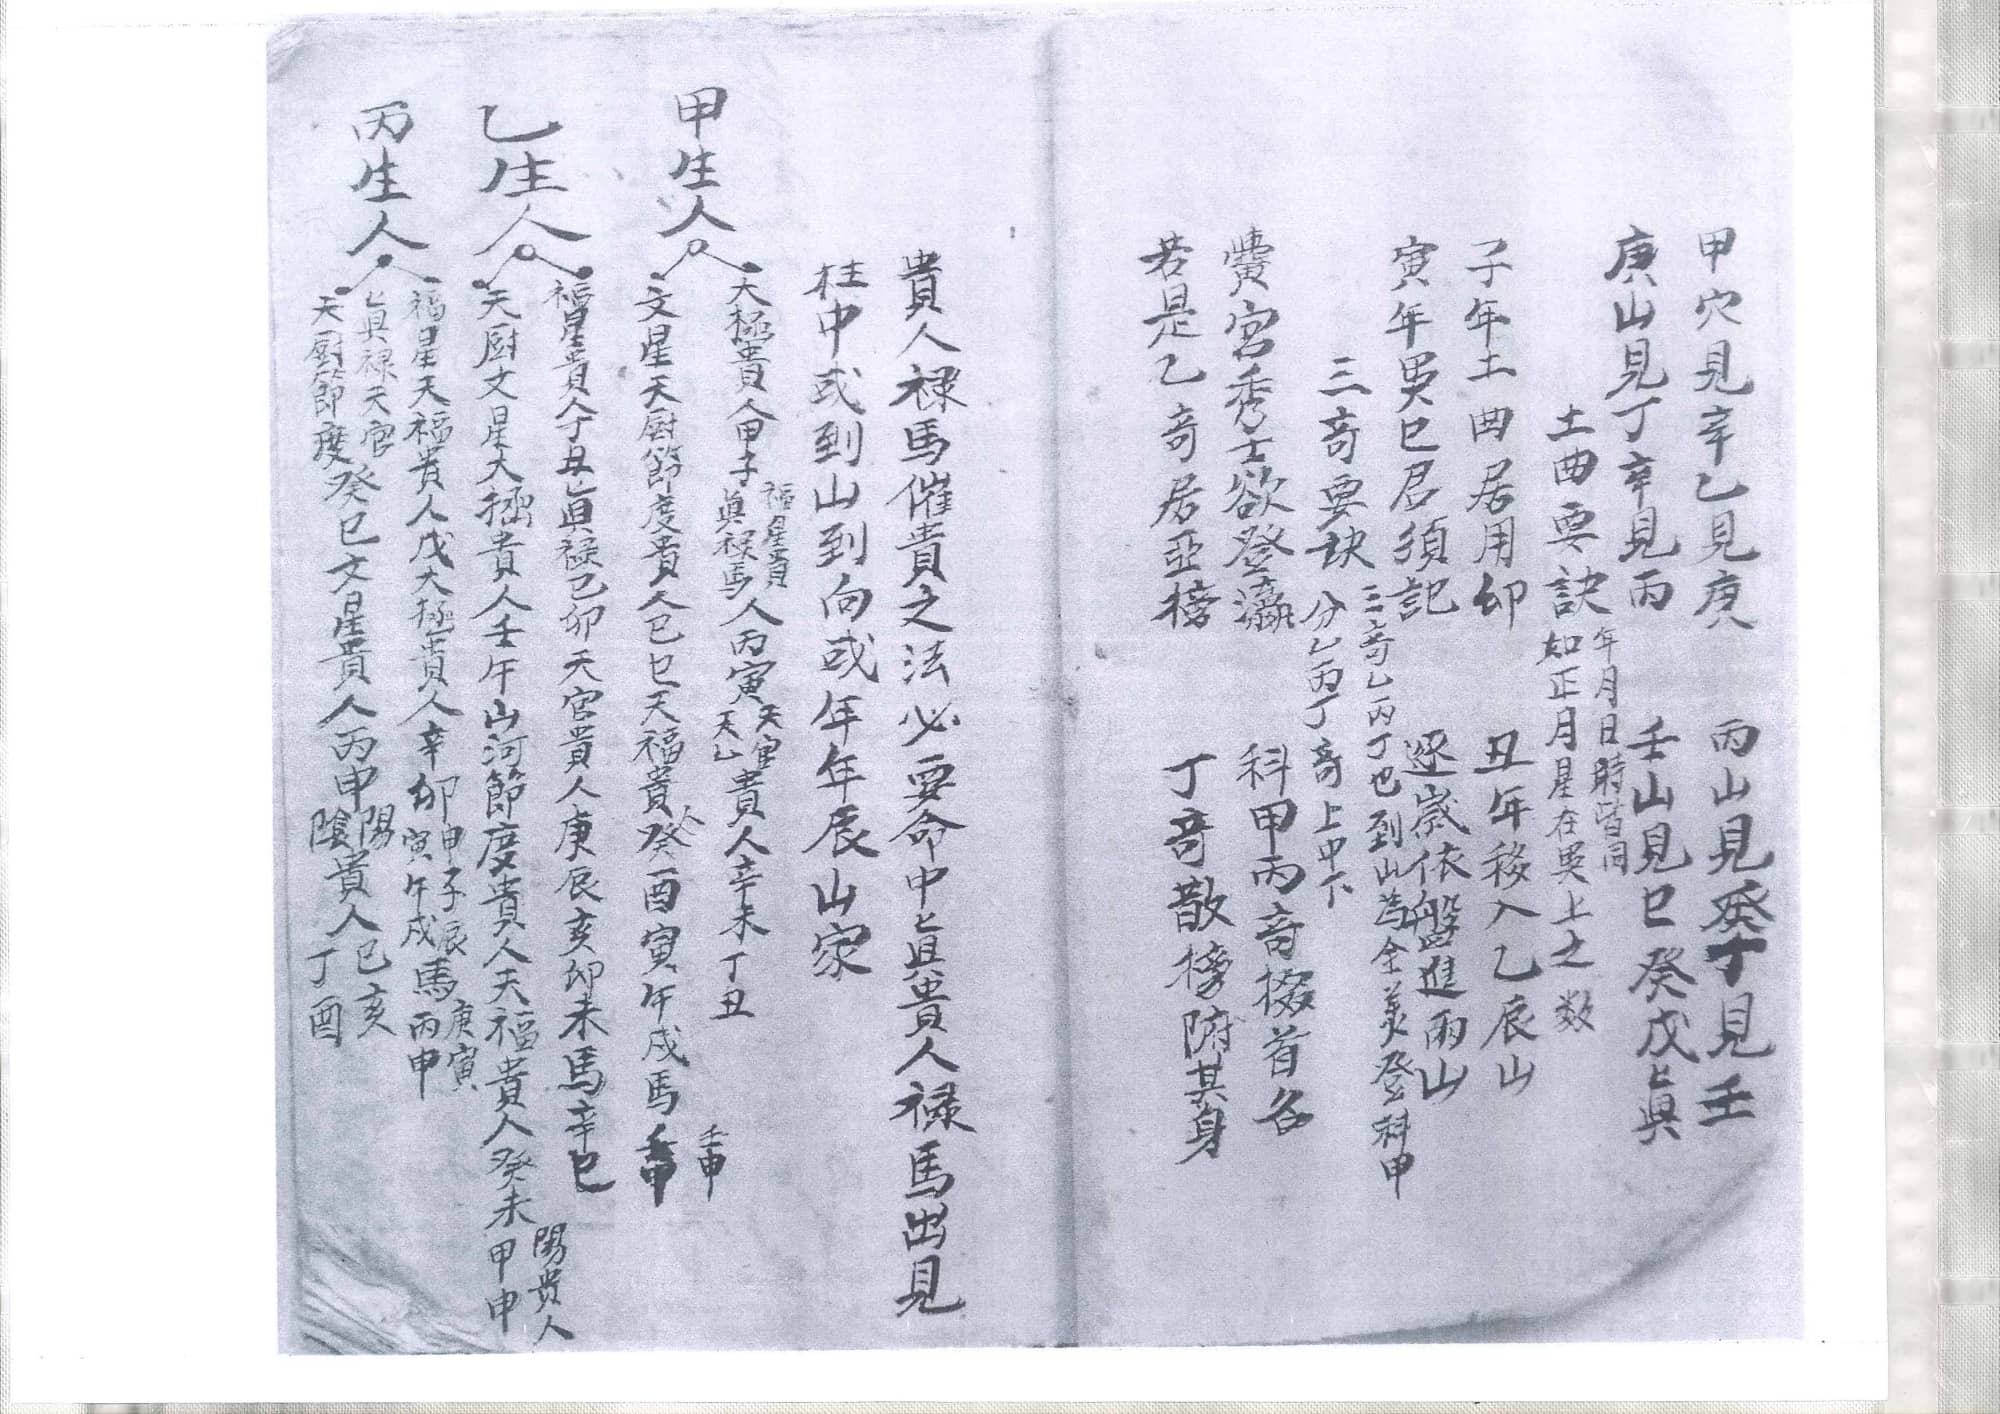 甲穴見辛乙見庚　丙山見癸丁見壬
庚山見丁辛見丙　壬山見巳癸戊是真
土曲要訣
年月日時皆同
如正月星在巽上之数
子年土曲居用卯　丑年移入乙辰山
寅年巽巳君須記　逐歲依盤進兩山
三奇要訣
三奇乙丙丁也到山為全美登科甲
分乙丙丁奇上中下
黌宮秀士欲登瀛　科甲丙奇掇首名
若是乙奇居亞榜　丁奇散榜附其身
貴人禄馬催貴之法必要命中真貴人禄馬出見
柱中或到山到向或年年辰山家
甲生人
天極貴人甲子
福星貴
真禄馬
人丙寅
天官
天乙
貴人辛未丁丑
文星天厨節度貴人己巳天福貴人癸酉寅午戌馬
壬申
乙生人
福星貴人丁丑真禄己卯天官貴人庚辰亥卯未馬辛巳
天厨文星太極貴人壬午山河節度貴人天福貴人癸未甲申
陽貴人
丙生人
福星天福貴人戊太極貴人辛卯
申子辰
寅午戌
馬
庚寅
丙申
真禄天官
天厨節度
癸巳文星貴人丙申
陽
陰
貴人
己亥
丁酉